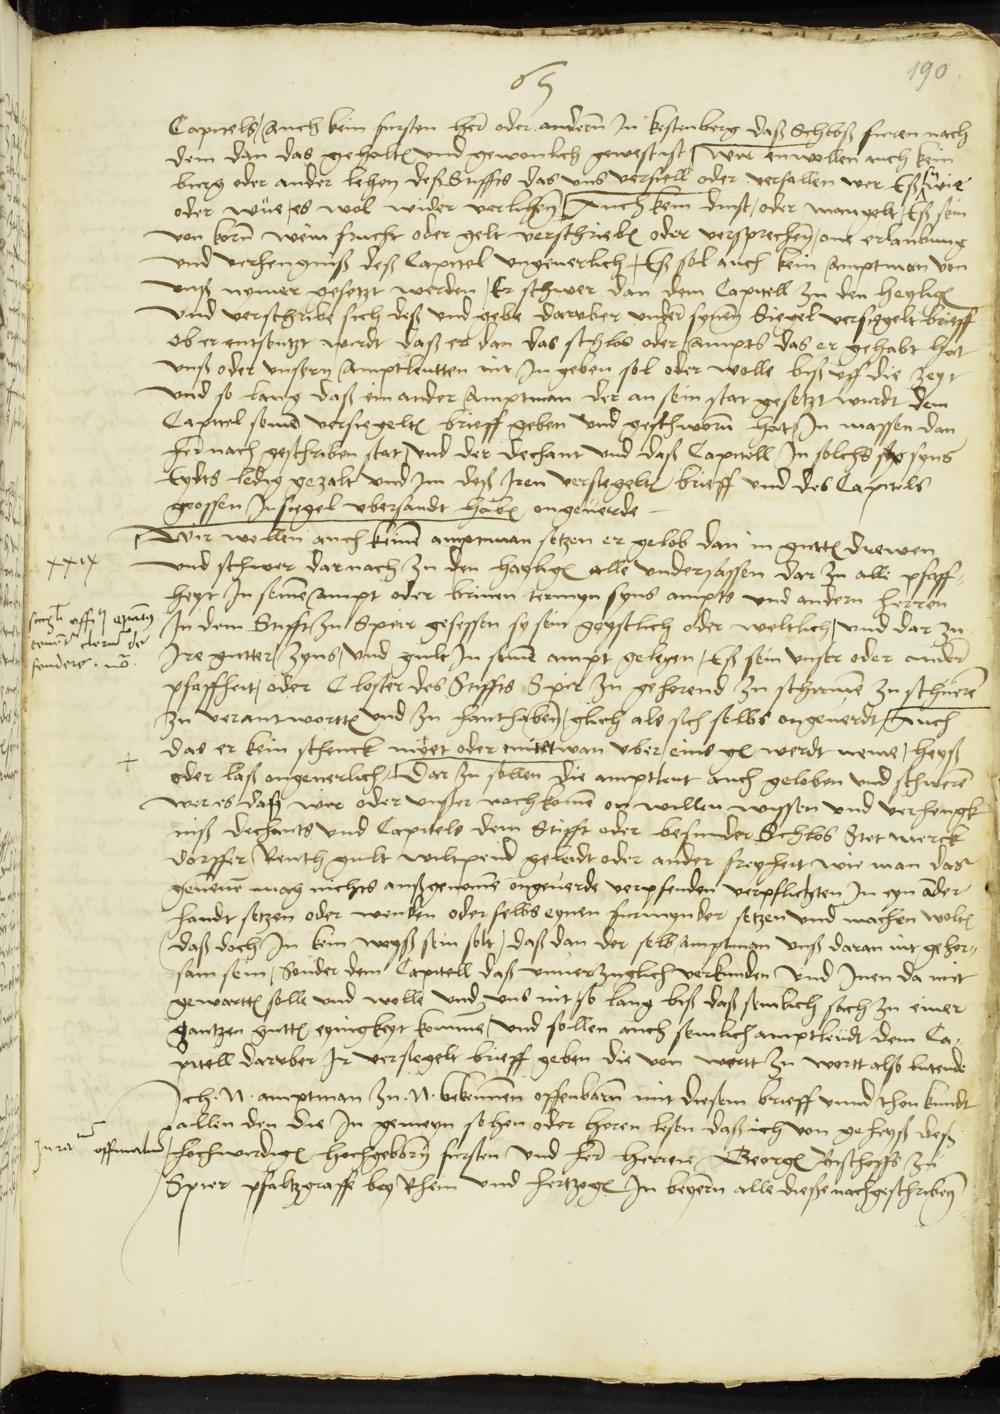 65
190
Capitels / Auch kein fursten her oder andern In kestenberg daß Schloß furen nach
dem dan das gehalten und gewonlich gewest ist / Wir enwollen auch kein
burg oder ander lehen deß Stiffts das uns versiell oder verfallen wer Eß wie
oder wüe / es wol wider verlihen / Auch kein dinst / oder mangelt / Eß sein
von korn wein frucht oder gelt verschrieben oder versprechen / one erlaubung
und verhengniß deß Capitel ungeverlich / Eß sol auch kein Amptman von
unß nymer gesetzt werden / Er schwer dan dem Capitell zu den heyligen
und verschribe sich deß und gebe daruber under synem Siegel versiegelt brieff
ob er entsetzt wirdt daß er dan das schlos oder Ampts das er gehabt hat
unß oder unsern Amptleutten nit In geben sol oder wolle biß uff die Zeyt
und so lang daß ein ander Amptman der an sein stat gesetzt wurdt dem
Capitel seinen versiegelten brieff geben und geschworn hat / In massen dan
hernach geschriben stat / und der dechant und daß Capitell In solchs syns
Eydts ledig gezalt und Im deß Iren versiegelten brieff und des Capitels
grossen Insiegel ubersandt haben ongeverde
Wir wollen auch keinen amptman setzen er gelob dan in gutten drewen
xxix
und schwer darnach zu den heyligen alle undersassen dar zu alle pfaff-
heyt In seinem Ampt oder brinen termyn syns ampts und andern herren
In dem Stifft zu Speir gesessen sy sein geystlich oder weltlich / und dar zu
Ire gutter / zyns / und gult In seinem ampt gelegen / Eß sein unser oder ander
pfaffheit / oder Closter des Stiffts Speir zu gehorend zu schirmen zu schueren
zu verantwortten und zu hanthaben / glich als sich selbs ongeverdt / Auch
+
das er kein schenck miet oder mitetwan uber eins gl werdt neme / heyß
oder laß ongeverlich / Dar zu sollen die amptleut auch geloben und schweren
wer es daß wir oder unser nachkomen on willen wissen und verhengk
niß dechants und Capitels dem Stifft oder besunder Schlos Stet merck
dorffer Renth gult wiltpend geleidt oder ander freyheit wie man das
genenen mag nichts ußgenomen ongeverde verpfenden verpflichten In eyn ander
handt setzen oder wenden oder selbs eynen furmynder setzen und machen wolten
daß doch In kein weyß sein solt / daß dan der selb Amptman unß daran nit gehor-
sam sein / sonder dem Capitell daß unverzuglich verkunden und Inen da mit
gewartten solle und wolle und uns nit so lang biß daß semlich sach zu einer
gantzen gutten eynigkeyt komme / und sollen auch semlich amptleudt dem Ca-
pitell daruber Ir versiegelt brieff geben die von wortt zu wortt also lutende
Ich N. amptman zu N. bekennen offenbarn mit diesem brieff unnd thon kundt
allen den die In gemeyn sehen oder horen lesen daß ich von geheyß deß
hochwirdigen hochgeborn fursten und her herren Georgen Bischoffs zu
Speir pfaltzgraffe bey Rhein und hertzogen In beyern alle diese nachgeschriben